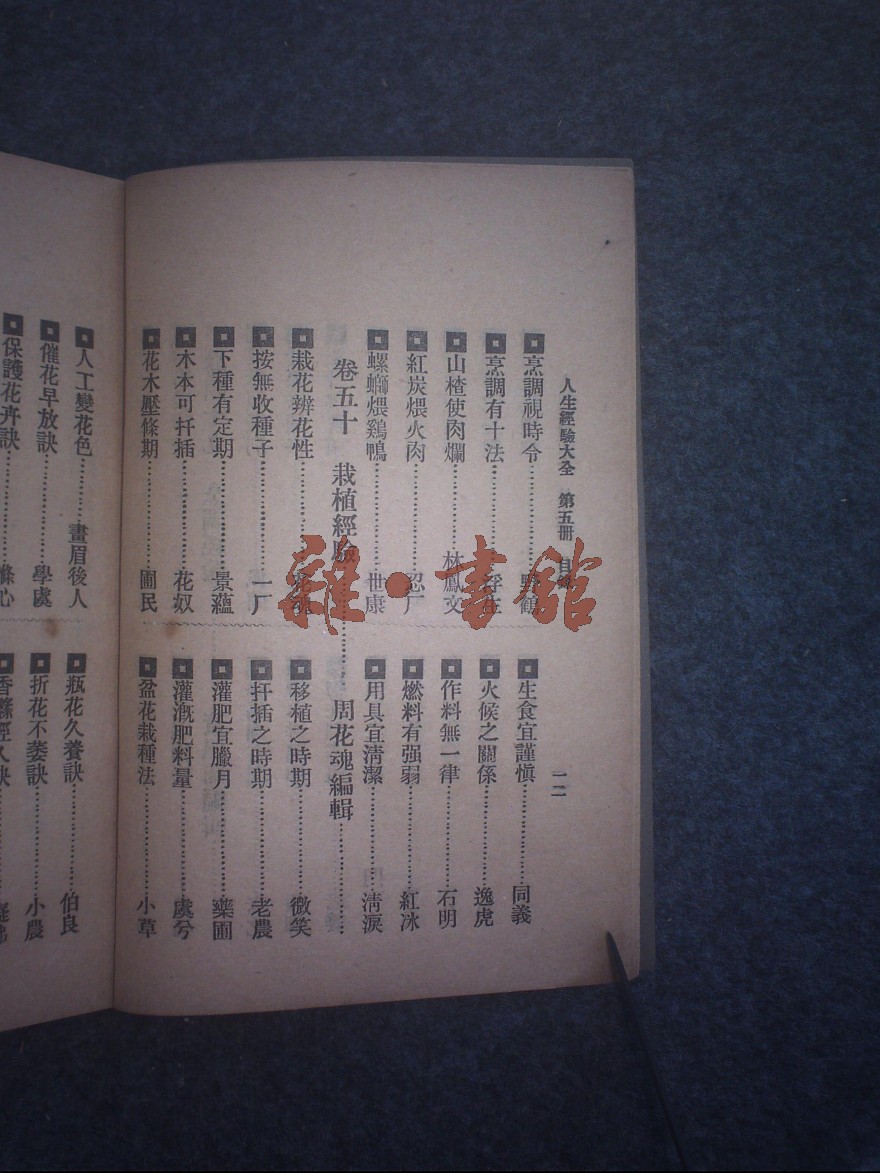 人生經驗大全　第五冊　目
一二
■烹調視時令……………野鶴
■烹調有十法……………
■山楂使肉爛……………林鳳文
■紅炭煨火肉……………忍厂
■螺螄煨鷄鴨……………世康
■生食宜謹愼……………同義
■火候之關係……………逸虎
■作料無一律……………石明
■燃料有强弱……………紅冰
■用具宜淸潔……………淸淚
卷五十　栽植經驗……………周花魂編輯……………
■栽花辨花性……………花魂
■按無收種子……………一厂
■下種有定期……………景蘊
■木本可扦插……………花奴
■花木壓條期……………圃民
■移植之時期……………微笑
■扦插之時期……………老農
■灌肥宜臘月……………藥圃
■灌漑肥料量……………虞兮
■盆花栽種法……………小草
■人工變花色……………畫眉後人
■催花早放訣……………學虞
■保護花卉訣……………滌心
■瓶花久養訣……………伯良
■折花不萎訣……………小農
雜·書館